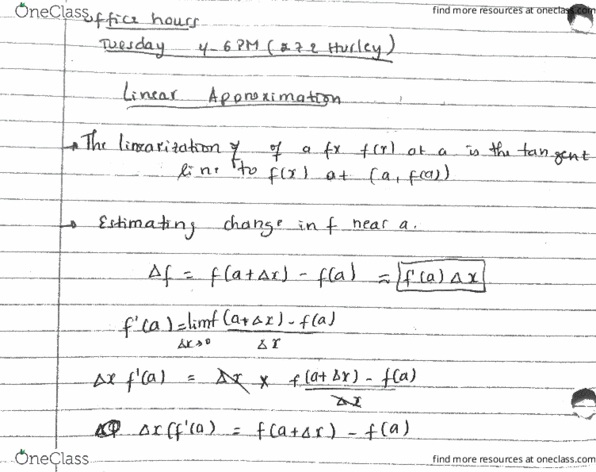 OneClass
find more resources at oneclass.com
office hours
Tuesday 4-6 PM (272 Hurley)
Linear Approximation
→ The linearization of a fx f(x) at a is the tangent
line to f(x) at (a, f(a))
→ Estimating change in f near a.
Δf = f(a+Δx) - f(a) ≈ f'(a) Δx
f'(a) = lim f(a+Δx) - f(a)
Δx→0 Δx
Δx f'(a) = Δx × f(a+Δx) - f(a)
Δx
Δx(f'(a) = f(a+Δx) - f(a)
OneClass
find more resources at oneclass.com